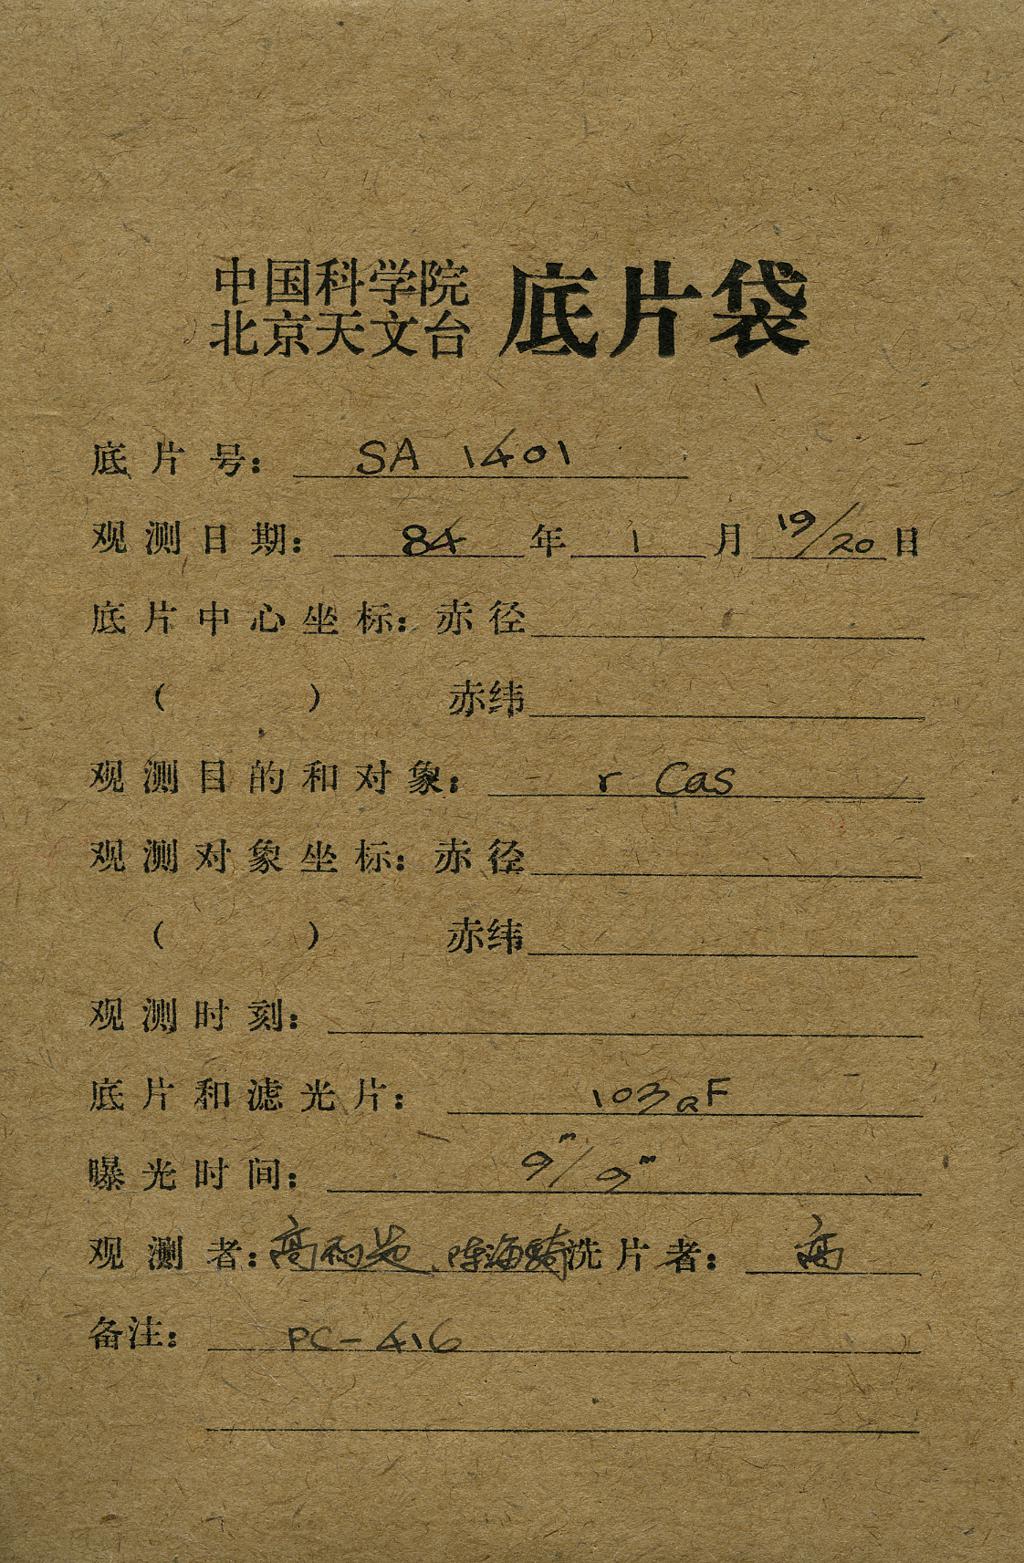 中国科学院
北京天文台 底片袋
底片号： SA 1401
观测日期： 84 年 1 月 19/20 日
底片中心坐标：赤径
（ ） 赤纬
观测目的和对象： r Cas
观测对象坐标：赤径
（ ） 赤纬
观测时刻：
底片和滤光片： 103aF
曝光时间： 9m/9m
观测者：高 陈海 洗片者： 高
备注： PC-416